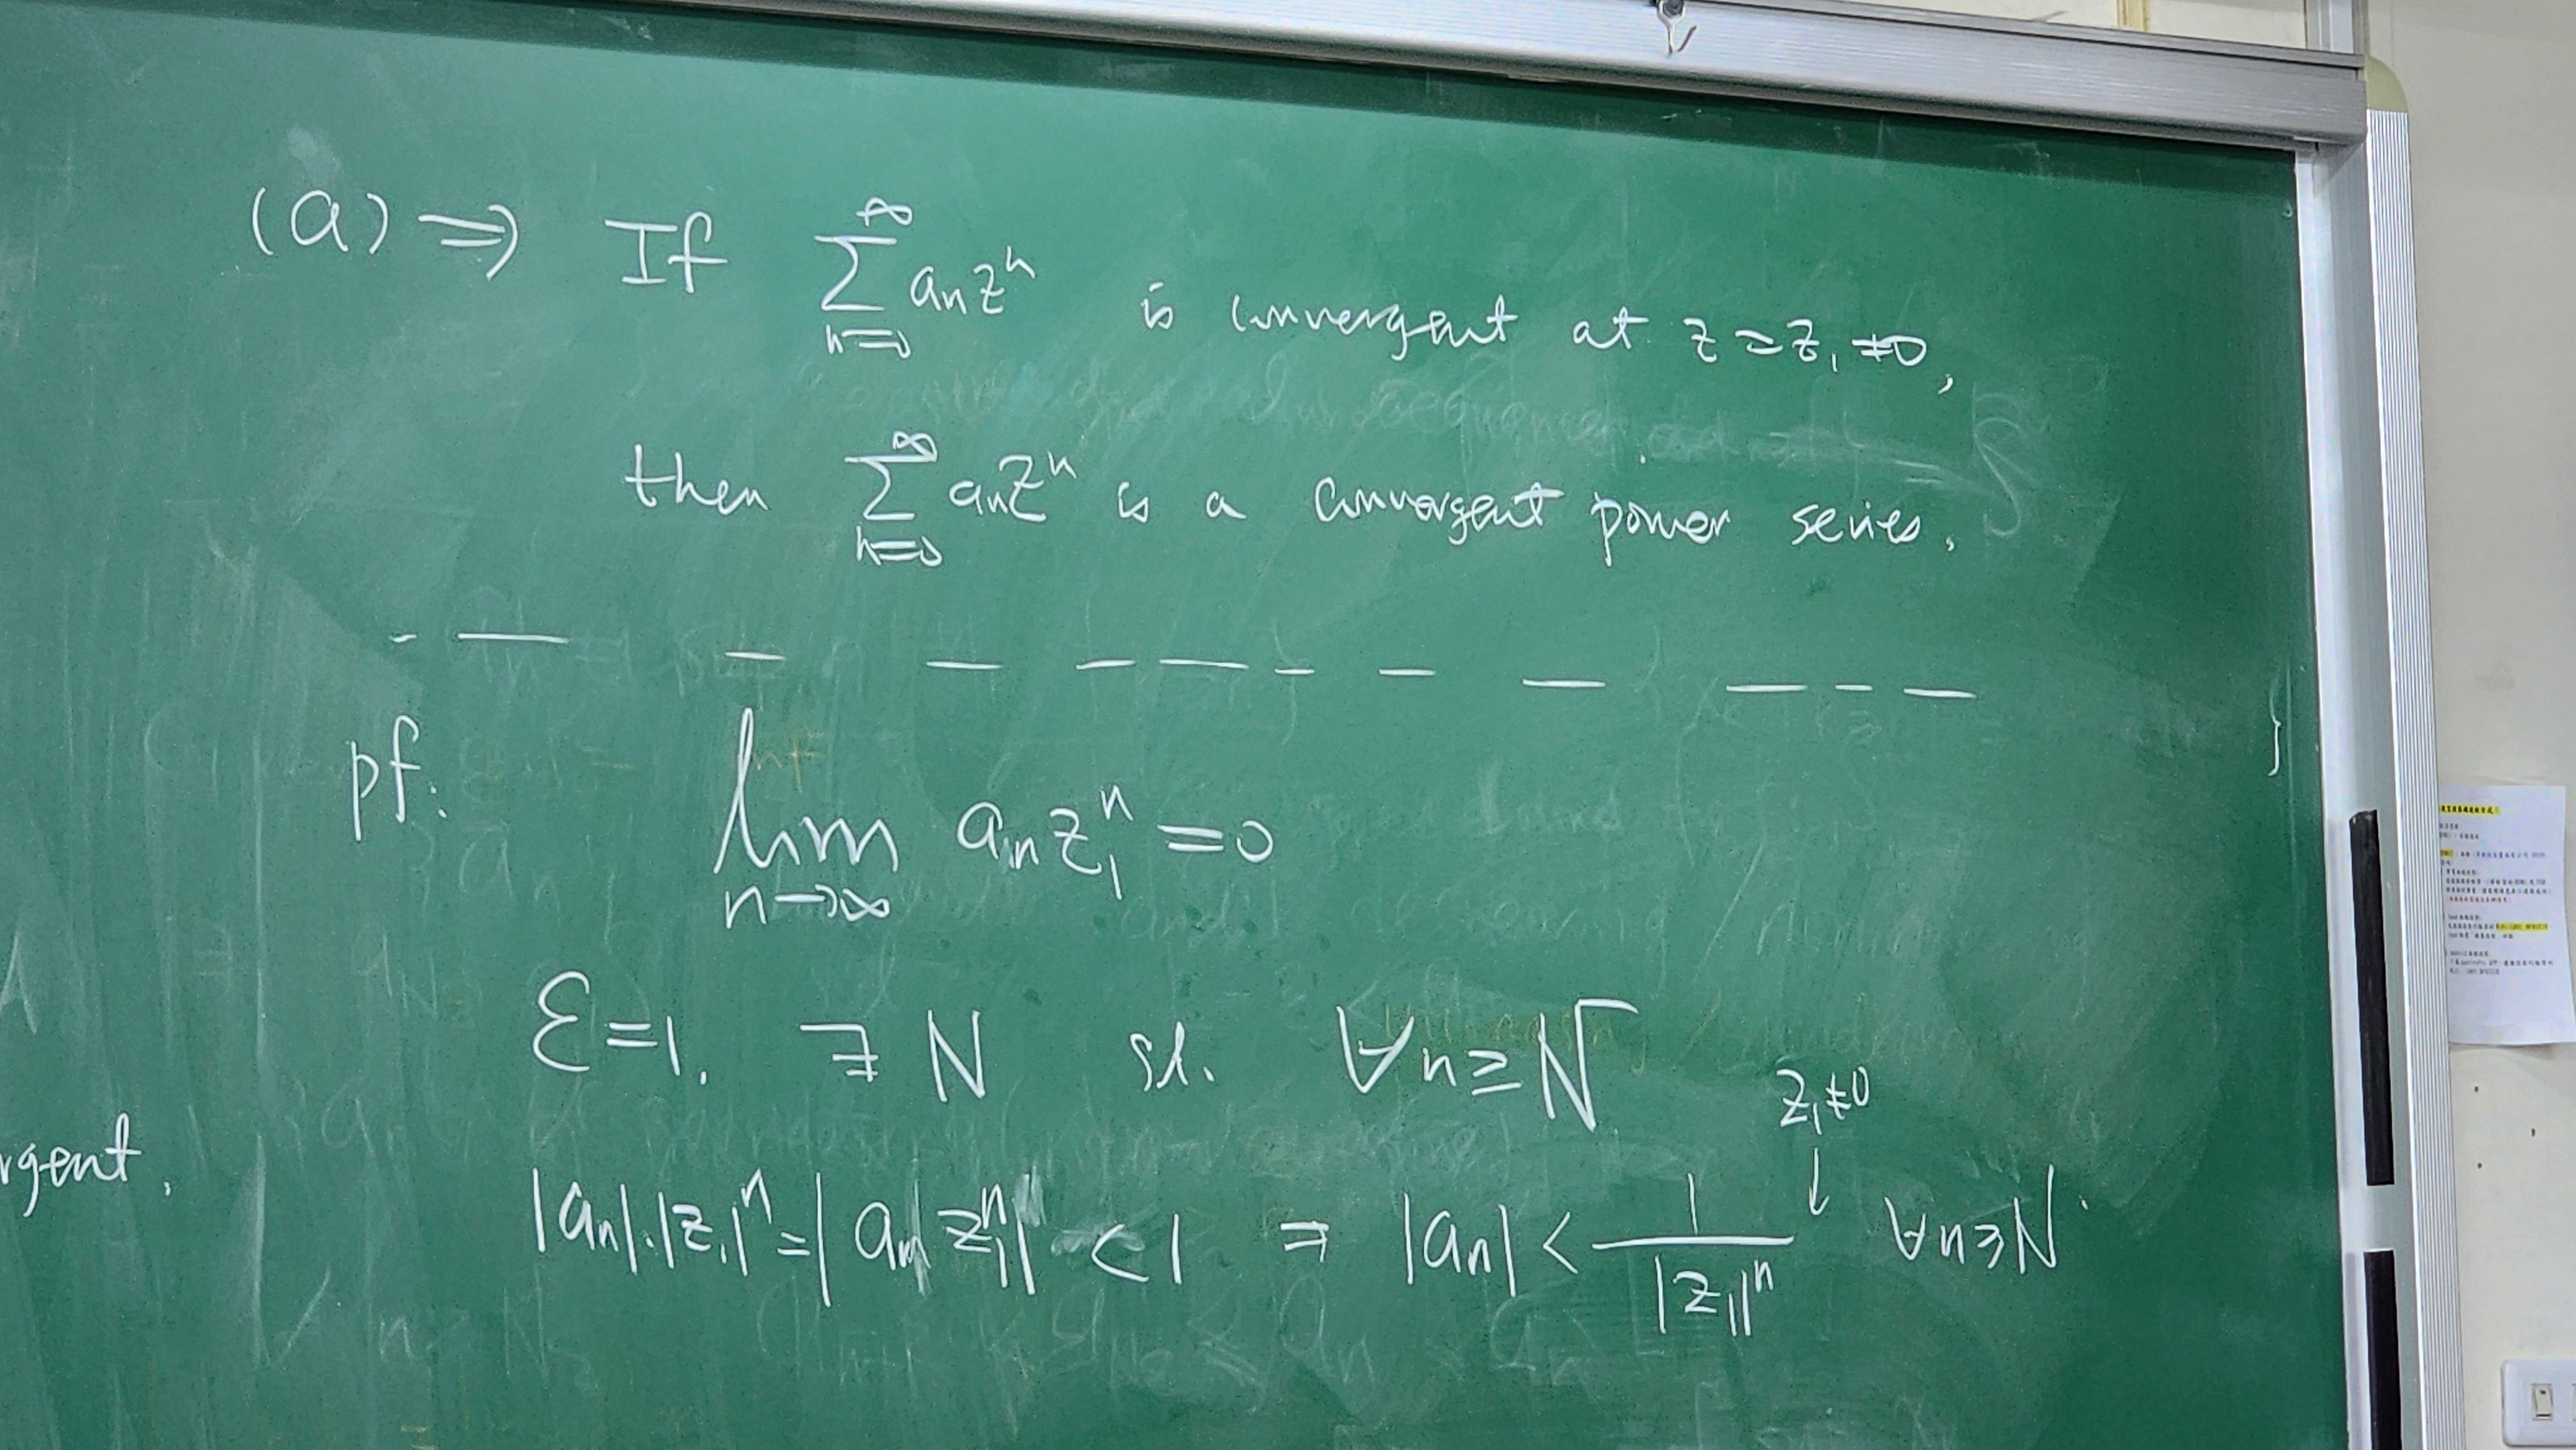 (a) ⇒ If ∑_{n=0}^{∞} a_n z^n is convergent at z = z_1 ≠ 0,
then ∑_{n=0}^{∞} a_n z^n is a convergent power series.
pf: lim_{n→∞} a_n z_1^n = 0
ε=1. ∃ N st. ∀n ≥ N
z_1 ≠ 0
↓
|a_n|·|z_1|^n = |a_n z_1^n| < 1 ⇒ |a_n| < 1/|z_1|^n ∀n ≥ N.
rgent.